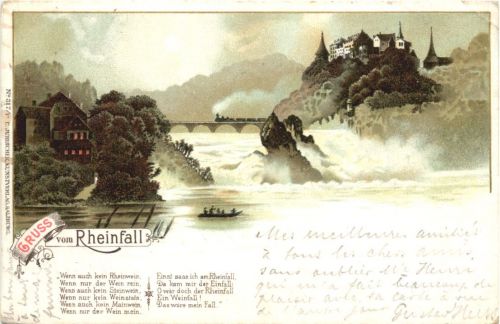 GRUSS
vom Rheinfall.
Wenn auch kein Rheinwein,
Wenn nur der Wein rein,
Wenn auch kein Steinwein,
Wenn nur kein Weinstein,
Wenn auch kein Mainwein,
Wenn nur der Wein mein.
Einst sass ich am Rheinfall,
Da kam mir der Einfall:
O wär doch der Rheinfall
Ein Weinfall!
Das wäre mein Fall.
Mes meilleures amitiés
à tous les chers amis,
sans oublier Mr Henri
qui m'a fait beaucoup de
plaisir avec sa carte à vue
de l'autre jour